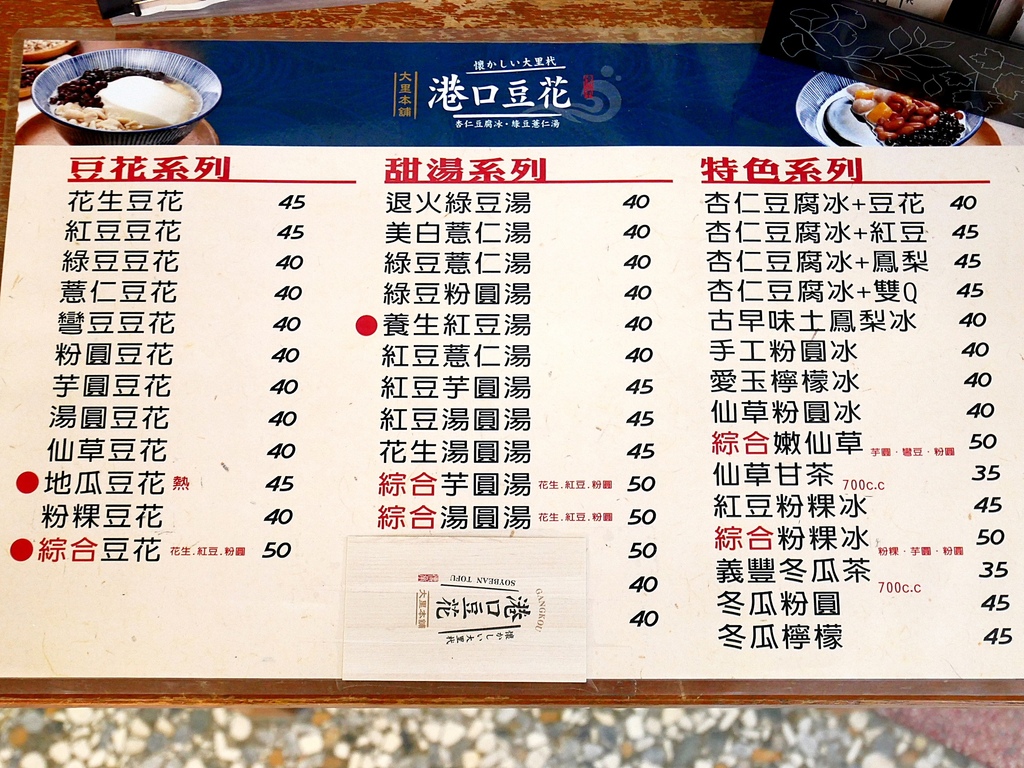 懐かしい大里杙
大里本舖
港口豆花
杏仁豆腐冰・綠豆薏仁湯
豆花系列
花生豆花 45
紅豆豆花 45
綠豆豆花 40
薏仁豆花 40
彎豆豆花 40
粉圓豆花 40
芋圓豆花 40
湯圓豆花 40
仙草豆花 40
地瓜豆花 熱 45
粉粿豆花 40
綜合豆花 花生.紅豆.粉圓 50
甜湯系列
退火綠豆湯 40
美白薏仁湯 40
綠豆薏仁湯 40
綠豆粉圓湯 40
養生紅豆湯 40
紅豆薏仁湯 40
紅豆芋圓湯 45
紅豆湯圓湯 45
花生湯圓湯 45
綜合芋圓湯 花生.紅豆.粉圓 50
綜合湯圓湯 花生.紅豆.粉圓 50
50
40
40
特色系列
杏仁豆腐冰+豆花 40
杏仁豆腐冰+紅豆 45
杏仁豆腐冰+鳳梨 45
杏仁豆腐冰+雙Q 45
古早味土鳳梨冰 40
手工粉圓冰 40
愛玉檸檬冰 40
仙草粉圓冰 40
綜合嫩仙草 芋圓・彎豆・粉圓 50
仙草甘茶 700c.c 35
紅豆粉粿冰 45
綜合粉粿冰 粉粿・芋圓・粉圓 50
義豐冬瓜茶 700c.c 35
冬瓜粉圓 45
冬瓜檸檬 45
GANGKOU
懐かしい大里杙
港口豆花
大里本舖
SOYBEAN TOFU